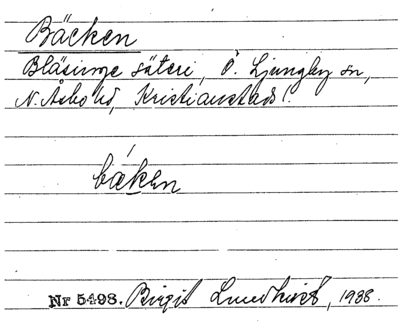 Bäcken
Bläsinge säteri, Ö. Ljungby sn,
N. Åsbo hd, Kristianstads l.
báken
Nr 5498. Birgit Lundkvist, 1938.